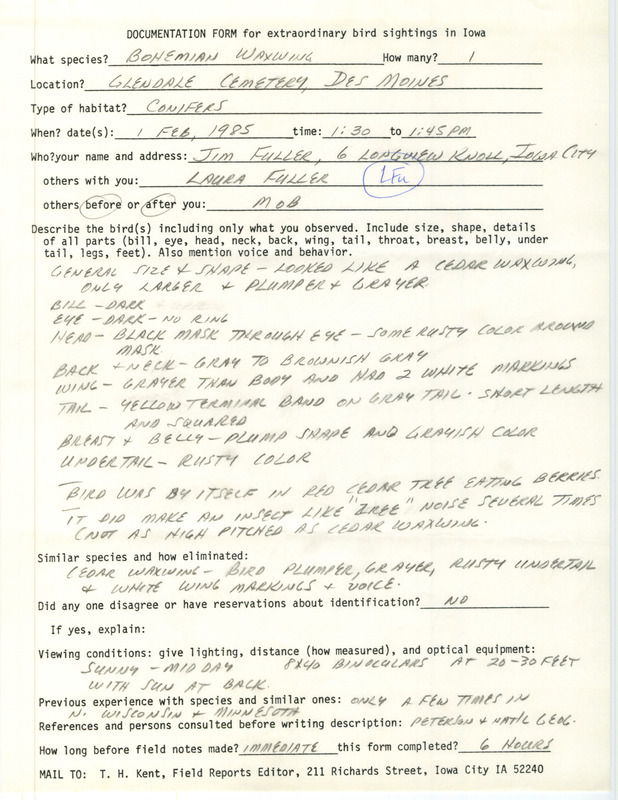 DOCUMENTATION FORM for extraordinary bird sightings in Iowa
What species? BOHEMIAN WAXWING How many? 1
Location? GLENDALE CEMETERY, DES MOINES
Type of habitat? CONIFERS
When? date(s): 1 FEB, 1985 time: 1:30 to 1:45 PM
Who?your name and address: JIM FULLER, 6 LONGVIEW KNOLL, IOWA CITY
others with you: LAURA FULLER LFu
others before or after you: MOB
Describe the bird(s) including only what you observed. Include size, shape, details
of all parts (bill, eye, head, neck, back, wing, tail, throat, breast, belly, under
tail, legs, feet). Also mention voice and behavior.
GENERAL SIZE & SHAPE - LOOKED LIKE A CEDAR WAXWING,
ONLY LARGER & PLUMPER & GRAYER.
BILL - DARK
EYE - DARK - NO RING
HEAD - BLACK MASK THROUGH EYE - SOME RUSTY COLOR AROUND
MASK.
BACK + NECK - GRAY TO BROWNISH GRAY
WING - GRAYER THAN BODY AND HAD 2 WHITE MARKINGS
TAIL - YELLOW TERMINAL BAND ON GRAY TAIL. SHORT LENGTH
AND SQUARED
BREAST & BELLY - PLUMP SHAPE AND GRAYISH COLOR
UNDERTAIL - RUSTY COLOR
BIRD WAS BY ITSELF IN RED CEDAR TREE EATING BERRIES.
IT DID MAKE AN INSECT LIKE "ZREE" NOISE SEVERAL TIMES
(NOT AS HIGH PITCHED AS CEDAR WAXWING.
Similar species and how eliminated:
CEDAR WAXWING - BIRD PLUMPER, GRAYER, RUSTY UNDERTAIL
& WHITE WING MARKINGS & VOICE.
Did any one disagree or have reservations about identification? NO
If yes, explain:
Viewing conditions: give lighting, distance (how measured), and optical equipment:
SUNNY - MID DAY 8X40 BINOCULARS AT 20-30 FEET
WITH SUN AT BACK.
Previous experience with species and similar ones: ONLY A FEW TIMES IN
N. WISCONSIN & MINNESOTA
References and persons consulted before writing description: PETERSON & NAT'L GEOG.
How long before field notes made? IMMEDIATE this form completed? 6 HOURS
MAIL TO: T. H. Kent, Field Reports Editor, 211 Richards Street, Iowa City IA 52240